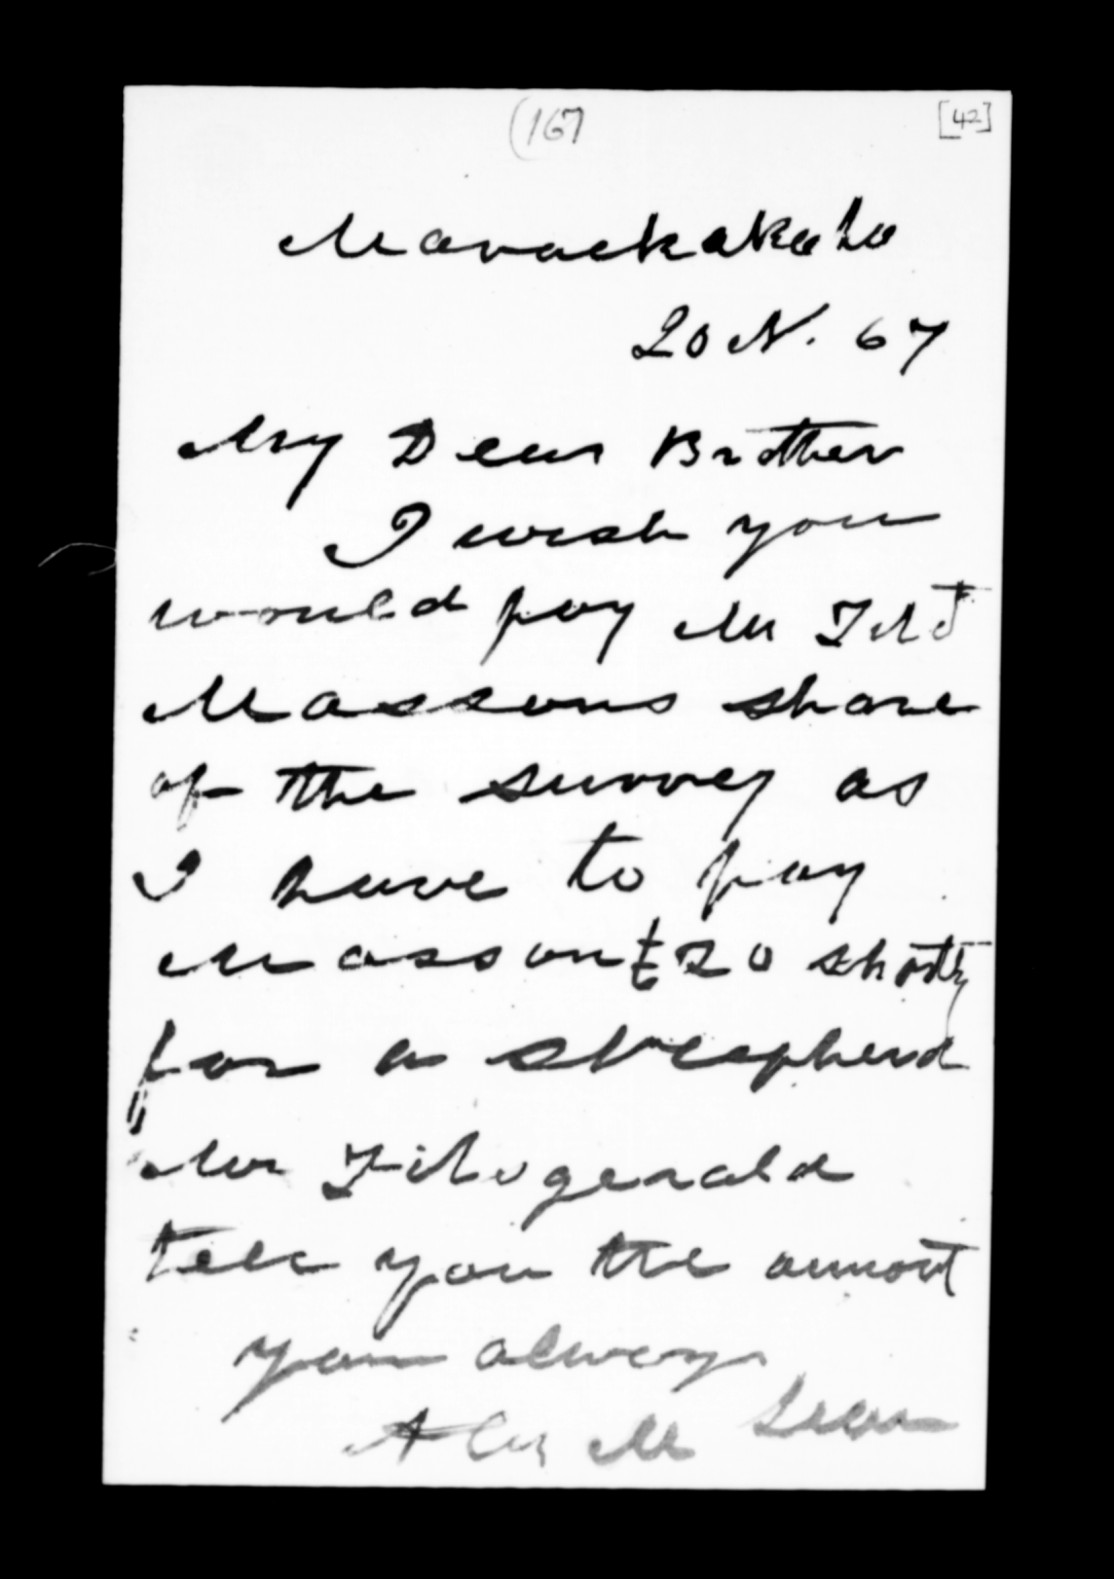 (167
[42]
Marackakaho
20 N. 67
My Dear Brother
I wish you
would pay Mr
Massons share
of the survey as
I have to pay
Masson £20 shortly
for a sheepherd
Mr Fitzgerald
tell you the amont
your always
Alex M Lean